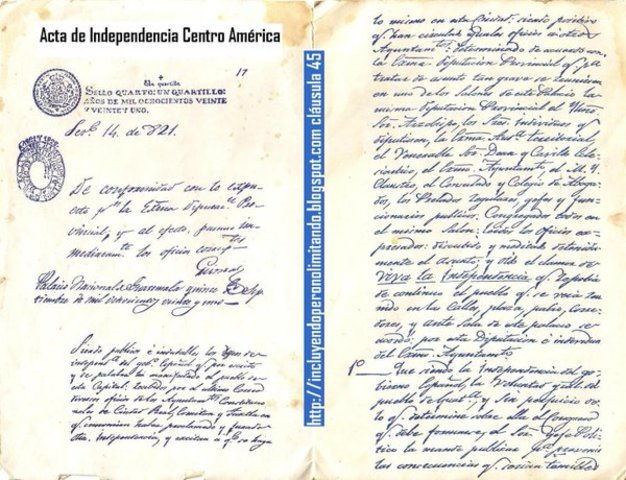 Acta de Independencia Centro América
17
Un quartillo
SELLO QUARTO: UN QUARTILLO:
AÑOS DE MIL OCHOCIENTOS VEINTE
Y VEINTE Y UNO.
14 de 821.
De conformidad con lo expu
esto pr la Exma Diputac.
vincial, y al efecto,
los oficios
Palacio Nacional de Guatemala quince de Sep
tiembre de mil ochocientos veinte y uno
Siendo publicos é indudables los deseos de
independa del gobo Español q. por escrito
y de palabra ha manifestado el pueblo de
esta Capital: recibidos por el ultimo Correo
diversos oficios de los Ayuntamtos Constitucio
nales de Ciudad Real, Comitan y Tuxtla en
q. comunican haber proclamado y jurado
dha. Independencia, y excitan á q. se haga
http://incluyendoperonolimitando.blogspot.com cláusula 45
lo mismo en esta Ciudad: siendo positivo
q. han circulado iguales oficios á otros
Ayuntamtos: determinado de acuerdo con
la Exma. Diputacion Provincial q. pa
tratar de asunto tan grave se reuniesen
en uno de los Salones de este Palacio la
misma Diputacion Provincial el Illmo
Sor. Arzobispo, los Sres. individuos q.
diputasen, la Exma. Auda territorial,
el Venerable Sor. Dean y Cavildo Ecle-
siastico, el Exmo. Ayuntamto, el M. Y.
Claustro, el Consulado y Colegio de Aboga-
dos, los Prelados regulares, gefes y fun-
cionarios publicos: Congregados todos en
el mismo Salon: leidos los oficios ex-
presados: discutido y meditado detenida-
mente el asunto; y oido el clamor de
Viva la Independencia q. repetia
de continuo el pueblo q. se veia reu-
nido en las Calles, plaza, patio, corre-
dores, y ante Sala de este palacio se
acordó: por esta Diputacion é individuos
del Exmo. Ayuntamto
1º Que siendo la Independencia del go-
bierno Español, la Voluntad gral. del
pueblo de Guata, y sin perjuicio de
lo q. determine sobre ella el Congreso
q. debe formarse, el Sor. Gefe Poli-
tico la mande publicar pa prevenir
las consecuencias q. serian temibles